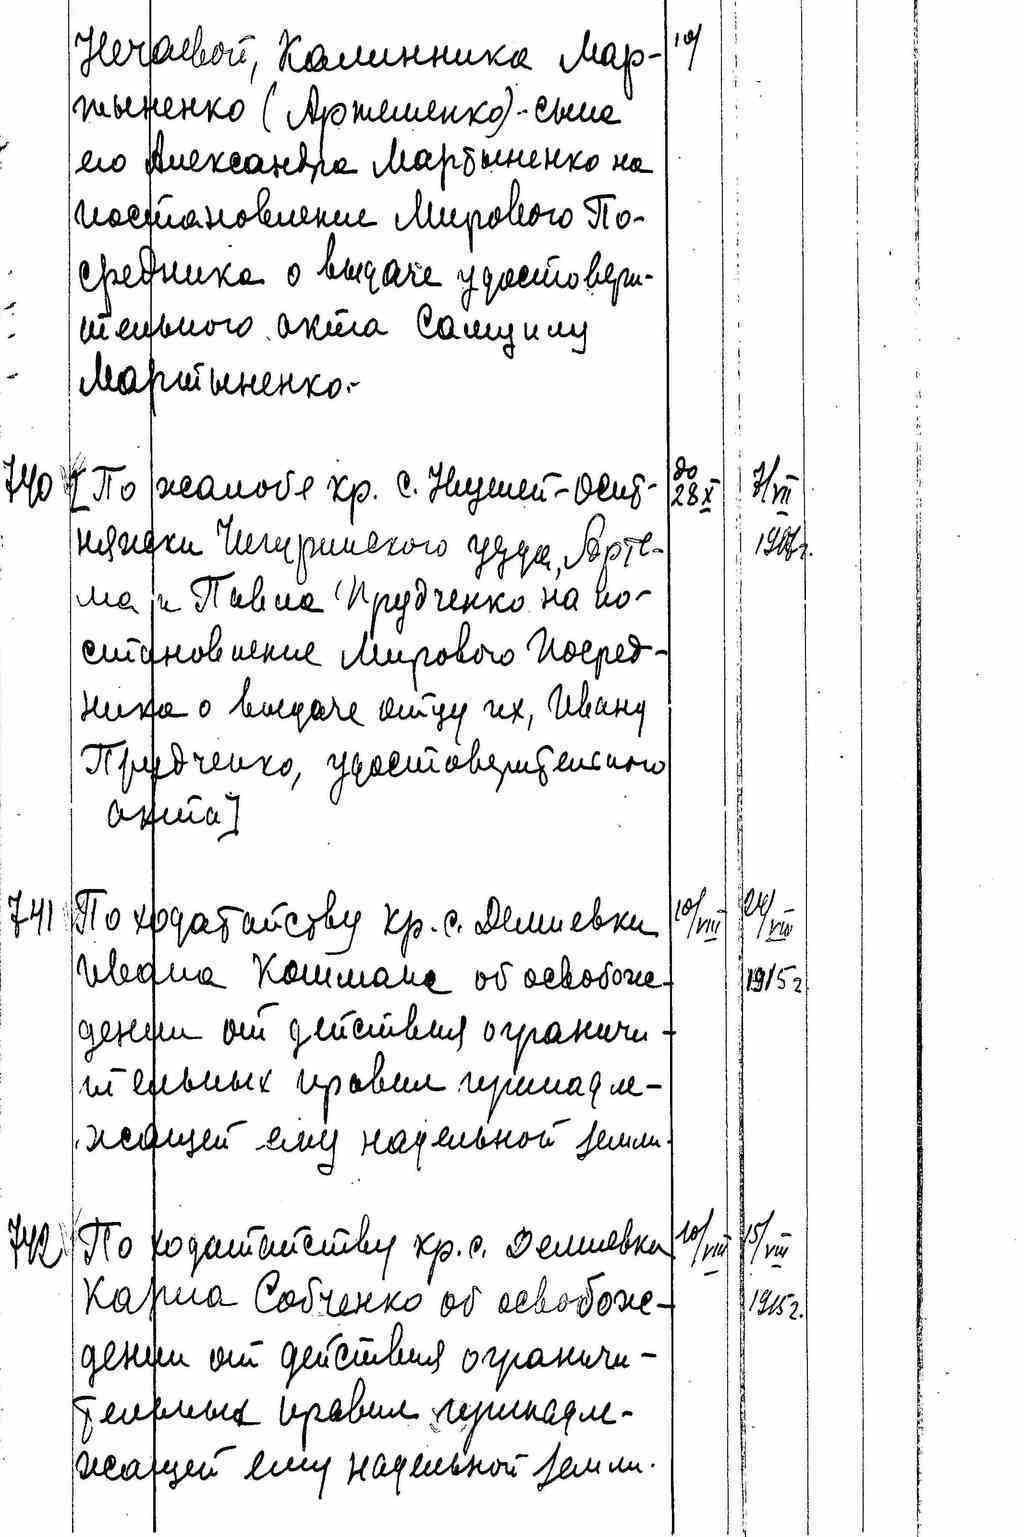 Нечаевой, Калинника Мар- 10/
тыненко (Артеменко) - сына
его Александра Мартыненко на
постановление Мирового По-
средника о выдаче удостовери-
тельного акта Самуилу
Мартыненко.-
740 [По жалобе кр. с. Нижней-Осит- до 28 X 7/VII
няжки Чигиринского уезда, Арте- г.
ма и Павла Прудченко на по-
становление Мирового Посред-
ника о выдаче отцу их, Ивану
Прудченко, удостоверительного
акта]
741 По ходатайству кр. с. Демиевки 10/VIII 24/VIII
Ивана Кошмана об освобож- 1915 г.
дении от действия ограничи-
тельных правил принадле-
жащей ему надельной земли.
742 По ходатайству кр. с. Демиевки 10/VIII 15/VIII
Карпа Собченко об освобож- 1915 г.
дении от действия ограничи-
тельных правил принадле-
жащей ему надельной земли.